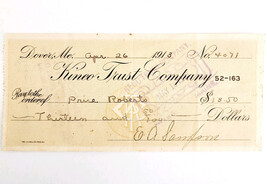 Dover, Me. Apr. 26 1913 No. 4071
Kineo Trust Company 52-163
Pay to the order of Prue Roberts $
Thirteen and Dollars
E.A.